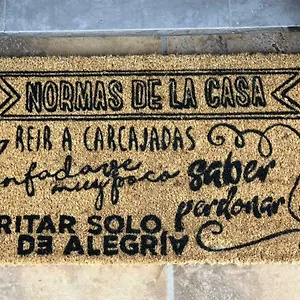 NORMAS DE LA CASA
REIR A CARCAJADAS
nfadarse
muy poco
saber
perdonar
RITAR SOLO
DE ALEGRIA